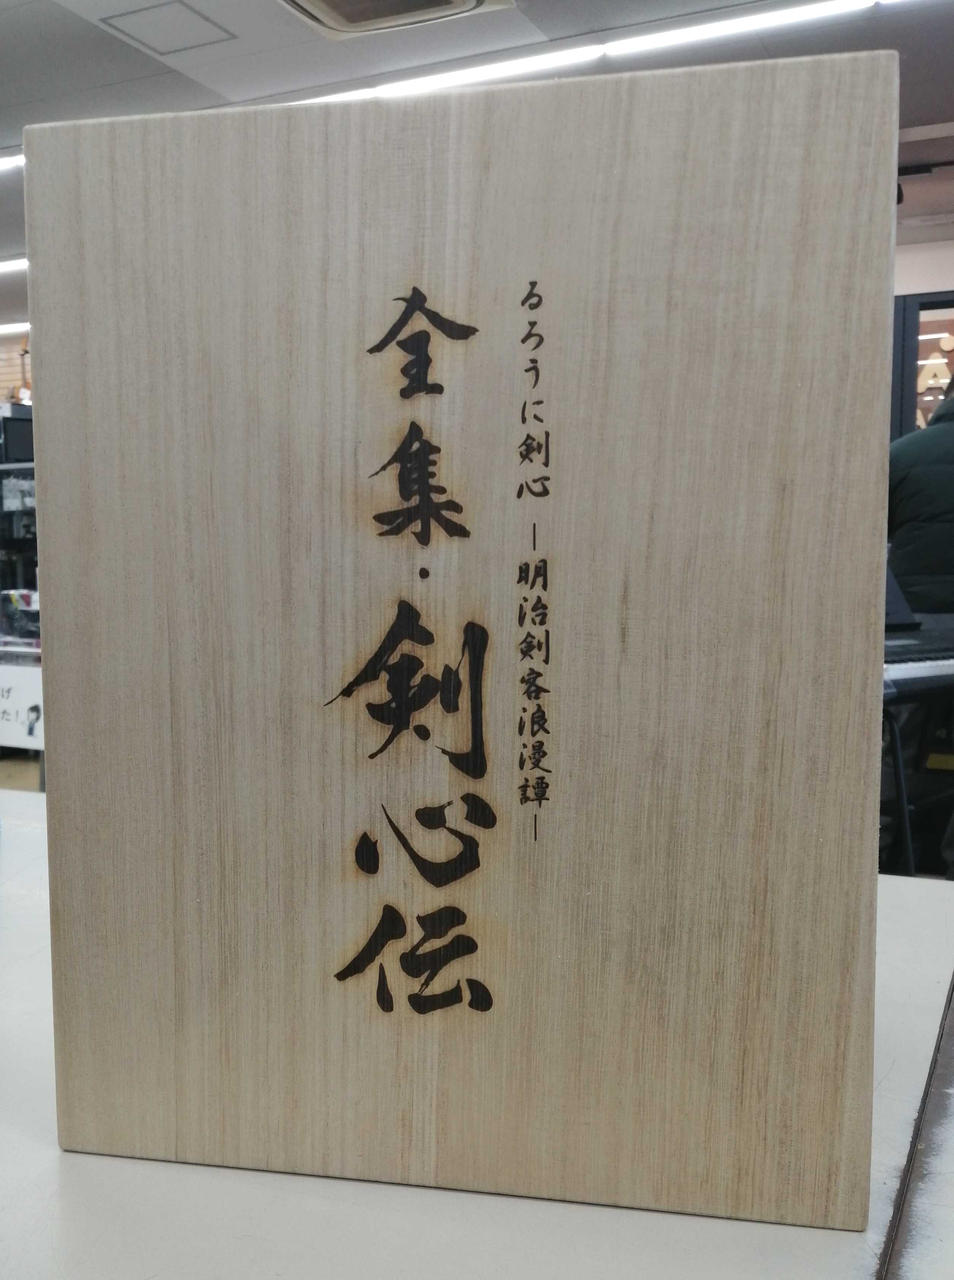 るろうに剣心 ー明治剣客浪漫譚ー
全集・剣心伝
げ
た!